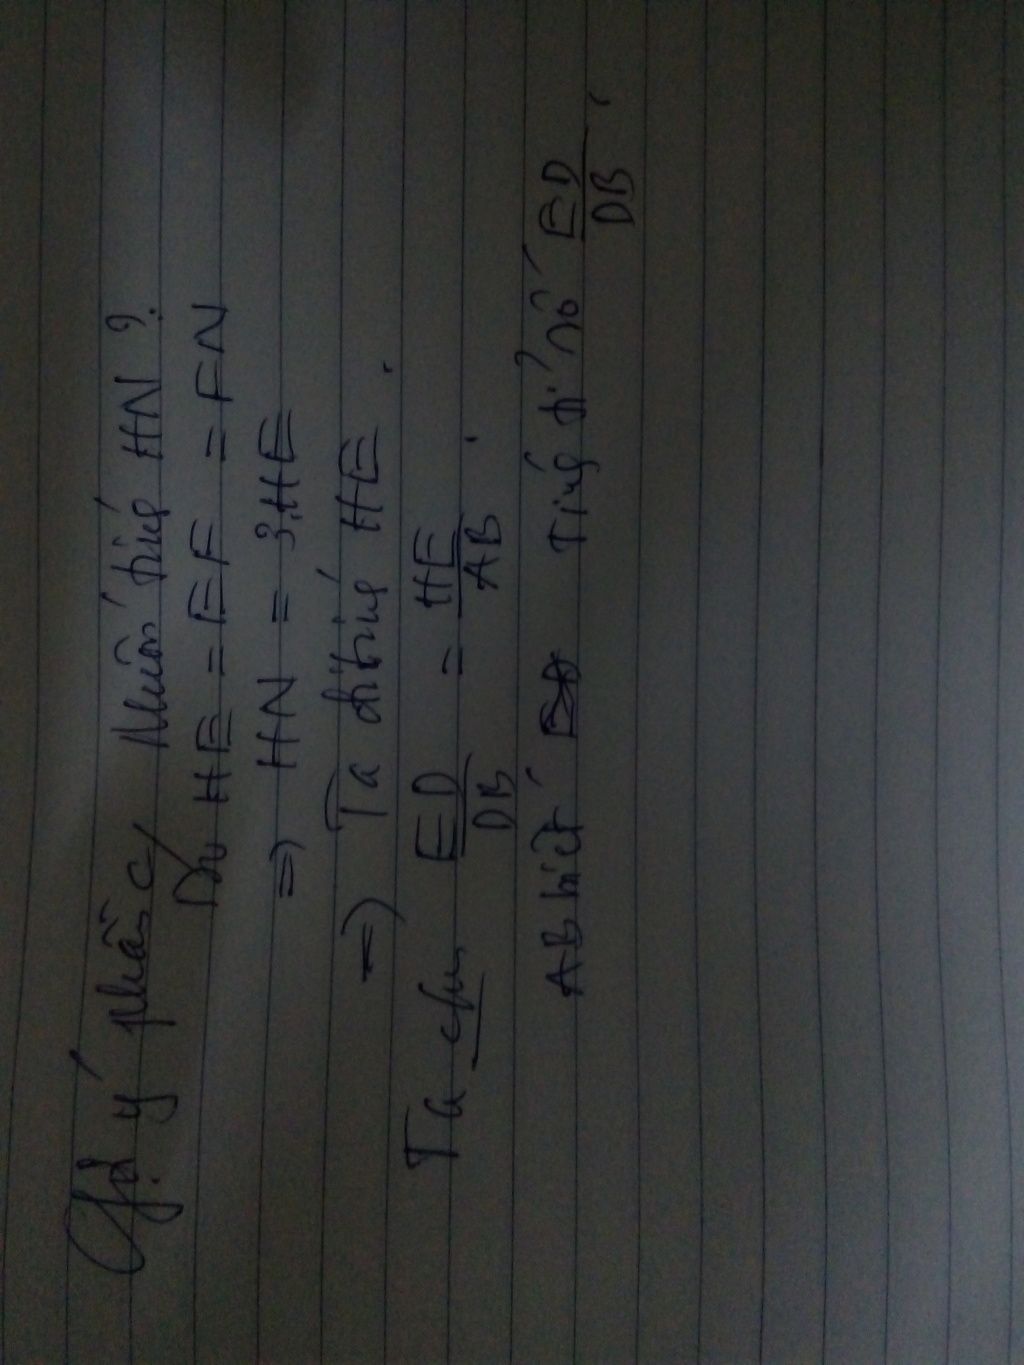 Gợi ý phần c/ Muốn tính HN ?
Do HE = EF = FN
=> HN = 3.HE
=> Ta đi tính HE.
Ta cm ED/DB = HE/AB.
AB biết Tính tỉ số ED/DB.